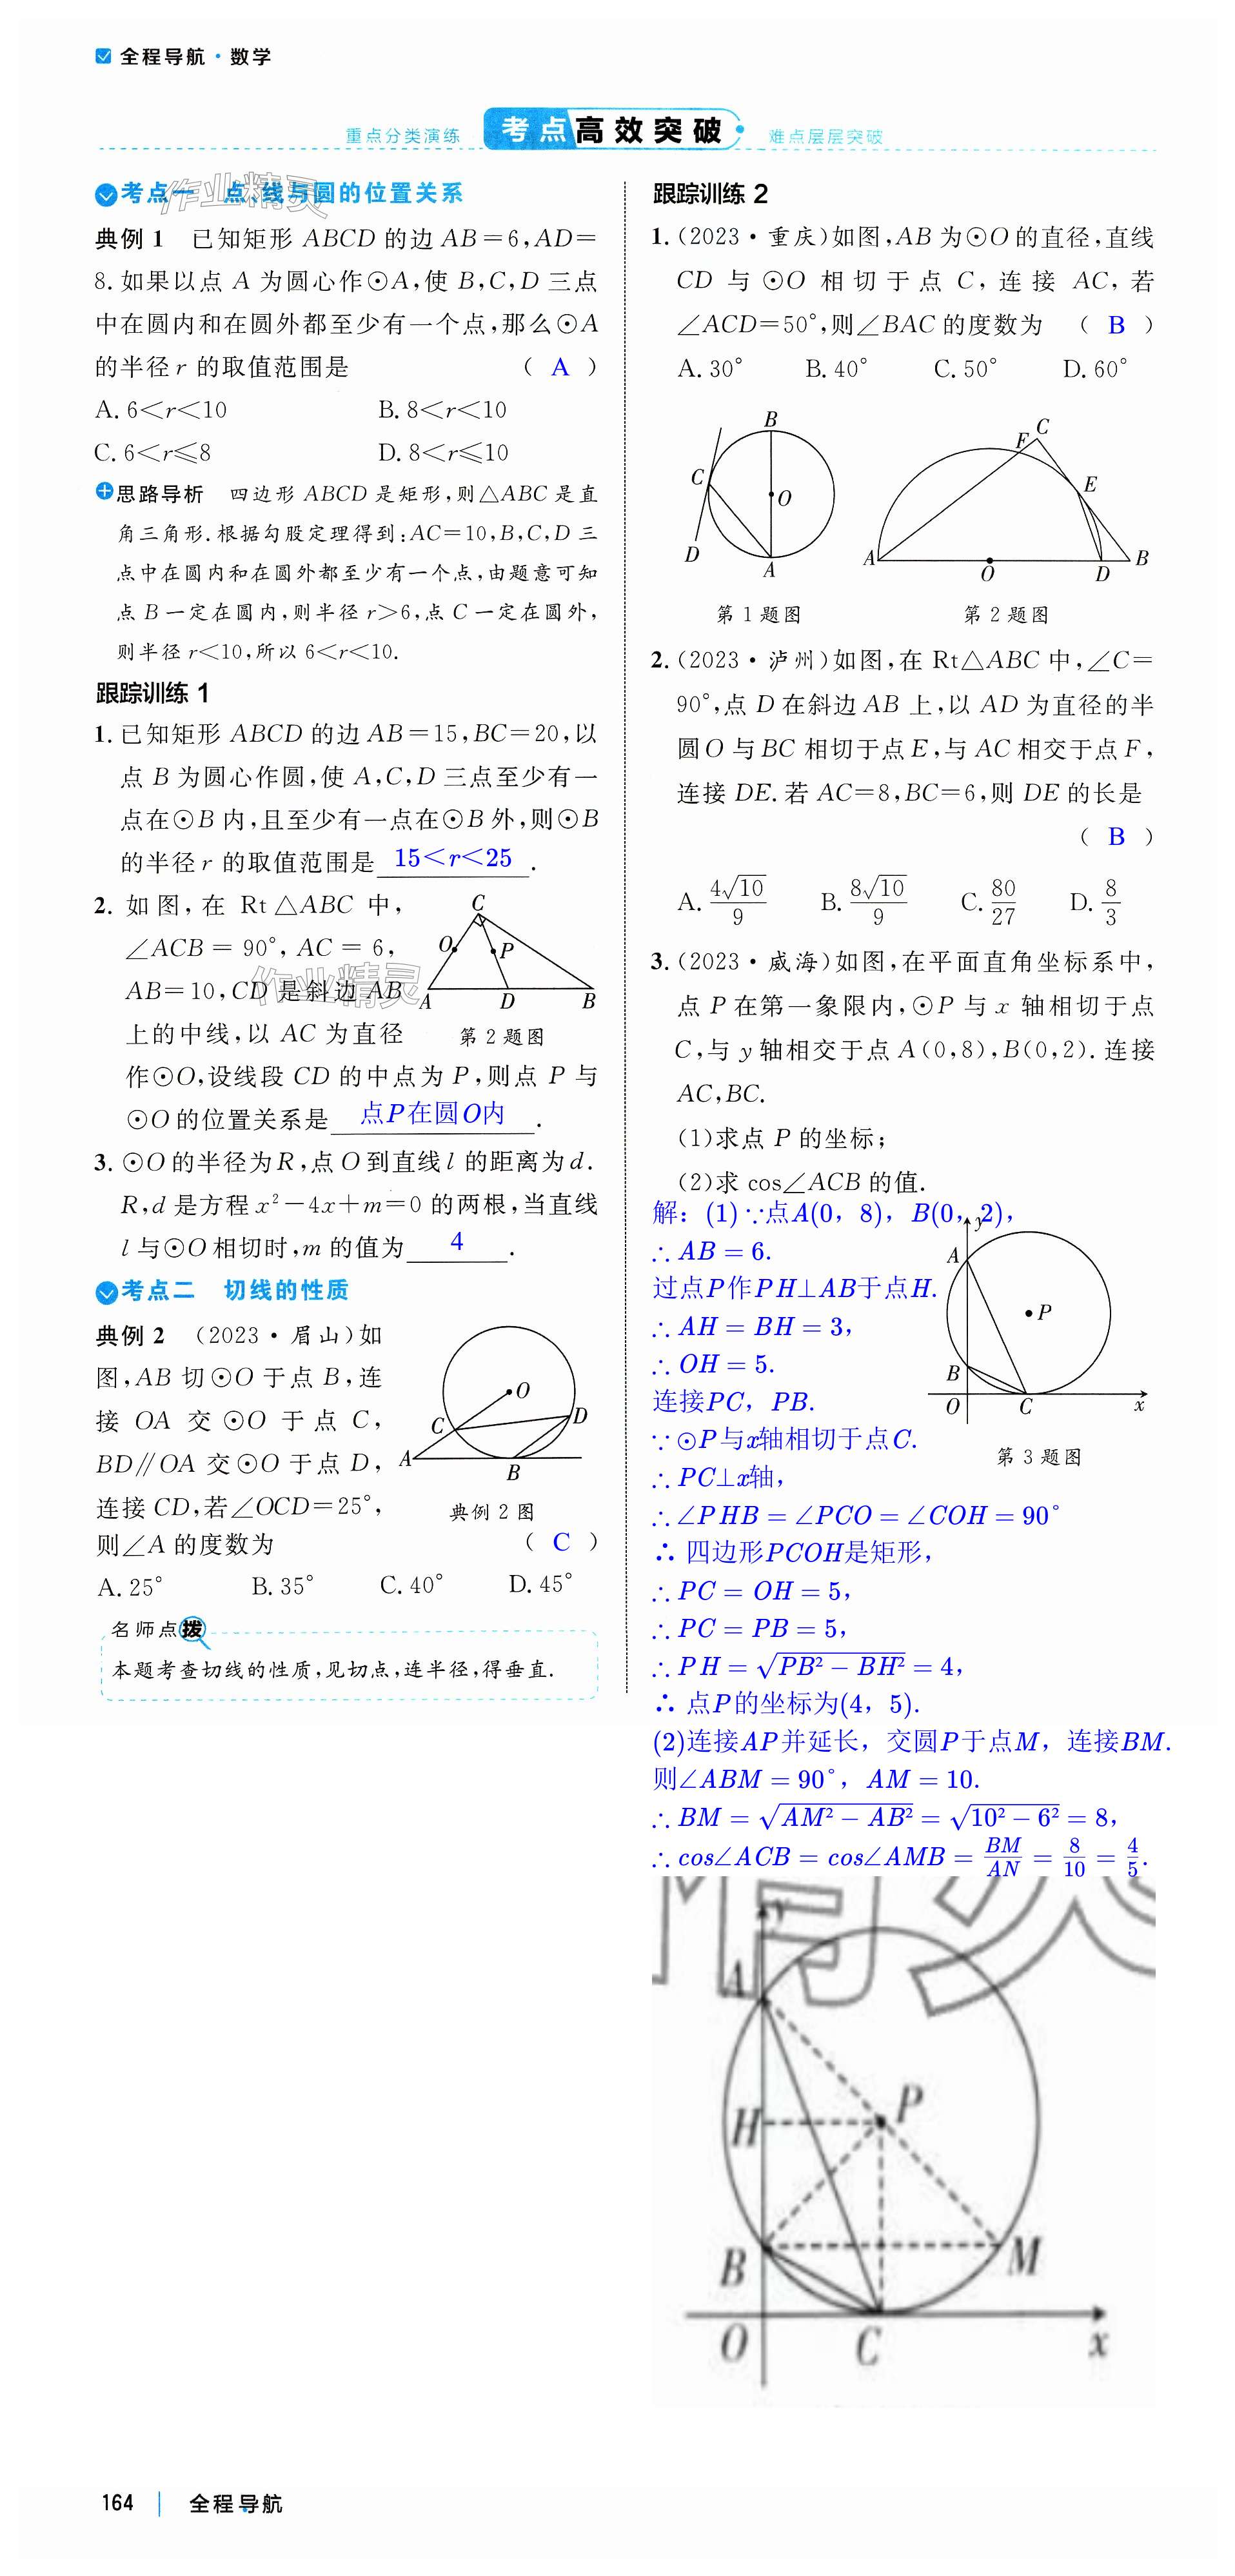 全程导航·数学
重点分类演练 考点高效突破 难点层层突破
考点一 点、线与圆的位置关系
作业精灵
典例1 已知矩形ABCD的边AB=6,AD=
8.如果以点A为圆心作⊙A,使B,C,D三点
中在圆内和在圆外都至少有一个点,那么⊙A
的半径r的取值范围是 ( A )
A.6<r<10 B.8<r<10
C.6<r≤8 D.8<r≤10
思路导析 四边形ABCD是矩形,则△ABC是直
角三角形.根据勾股定理得到:AC=10,B,C,D三
点中在圆内和在圆外都至少有一个点,由题意可知
点B一定在圆内,则半径r>6,点C一定在圆外,
则半径r<10,所以6<r<10.
跟踪训练1
1.已知矩形ABCD的边AB=15,BC=20,以
点B为圆心作圆,使A,C,D三点至少有一
点在⊙B内,且至少有一点在⊙B外,则⊙B
的半径r的取值范围是 15<r<25 .
2.如图,在Rt△ABC中,
∠ACB=90°,AC=6,
AB=10,CD是斜边AB
上的中线,以AC为直径
作⊙O,设线段CD的中点为P,则点P与
⊙O的位置关系是 点P在圆O内 .
C
O P
A D B
第2题图
作业精灵
3.⊙O的半径为R,点O到直线l的距离为d.
R,d是方程x²-4x+m=0的两根,当直线
l与⊙O相切时,m的值为 4 .
考点二 切线的性质
典例2 (2023·眉山)如
图,AB切⊙O于点B,连
接OA交⊙O于点C,
BD∥OA交⊙O于点D,
连接CD,若∠OCD=25°,
则∠A的度数为 ( C )
O
C D
A
B
典例2图
A.25° B.35° C.40° D.45°
名师点拨
本题考查切线的性质,见切点,连半径,得垂直.
跟踪训练2
1.(2023·重庆)如图,AB为⊙O的直径,直线
CD与⊙O相切于点C,连接AC,若
∠ACD=50°,则∠BAC的度数为 ( B )
A.30° B.40° C.50° D.60°
B
C
O
D
A
第1题图
F C
E
A
O D B
第2题图
2.(2023·泸州)如图,在Rt△ABC中,∠C=
90°,点D在斜边AB上,以AD为直径的半
圆O与BC相切于点E,与AC相交于点F,
连接DE.若AC=8,BC=6,则DE的长是
( B )
A.4√10/9 B.8√10/9 C.80/27 D.8/3
3.(2023·威海)如图,在平面直角坐标系中,
点P在第一象限内,⊙P与x轴相切于点
C,与y轴相交于点A(0,8),B(0,2).连接
AC,BC.
(1)求点P的坐标;
(2)求cos∠ACB的值.
解：(1)∵点A(0，8)，B(0，2)，
∴AB=6.
过点P作PH⊥AB于点H.
∴AH=BH=3，
∴OH=5.
连接PC，PB.
∵⊙P与x轴相切于点C.
∴PC⊥x轴，
∴∠PHB=∠PCO=∠COH=90°
∴四边形PCOH是矩形，
∴PC=OH=5，
∴PC=PB=5，
∴PH=√(PB²-BH²)=4，
∴点P的坐标为(4，5).
y
A
P
B
O C x
第3题图
(2)连接AP并延长，交圆P于点M，连接BM.
则∠ABM=90°，AM=10.
∴BM=√(AM²-AB²)=√(10²-6²)=8，
∴cos∠ACB=cos∠AMB=BM/AN=8/10=4/5.
y
A
P
H
B M
O C x
164 全程导航